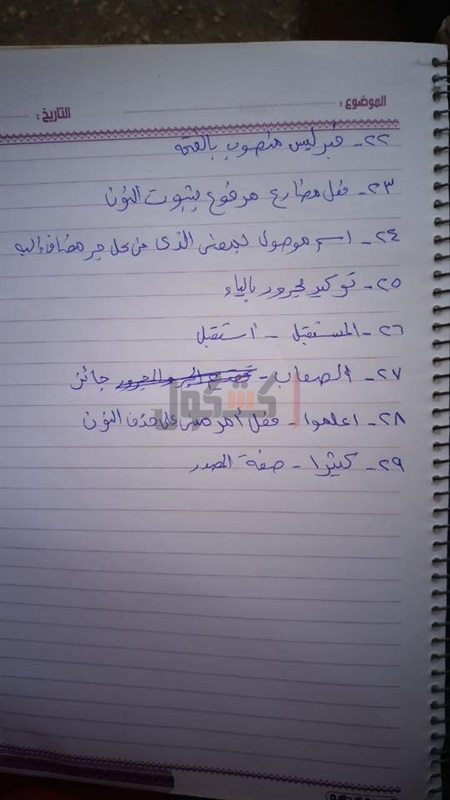 الموضوع :
التاريخ :
٢٢- خبر ليس منصوب بالفتحة
٢٣- فعل مضارع مرفوع بثبوت النون
٢٤- اسم موصول بمعنى الذى فى محل جر مضاف إليه
٢٥- توكيد مجرور بالياء
٢٦- المستقبل - استقبل
٢٧- الصفات - جائز
٢٨- اعلموا - فعل أمر مبنى على حذف النون
٢٩- كثيرا - صفة المصدر
كشكول